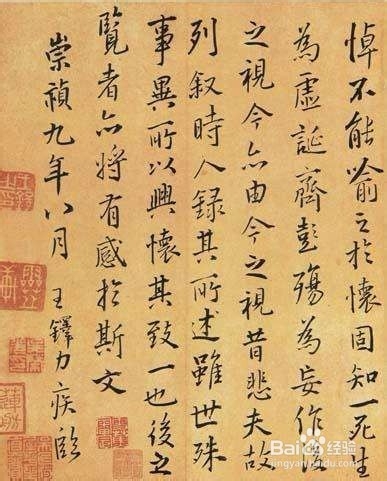 悼不能喻之於懷固知一死生
為虛誕齊彭殤為妄作後
之視今亦由今之視昔悲夫故
列叙時人録其所述雖世殊
事異所以興懷其致一也後之
覽者亦將有感於斯文
崇禎九年八月 王鐸力疾臨
Bai 经验
jingyan.baidu.com